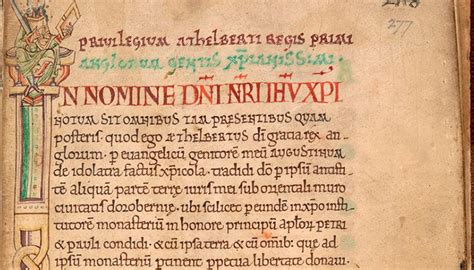 277
PRIVILEGIUM ÆTHELBERTI REGIS PRIMI
ANGLORUM GENTIS XP̄IANISSIMI.
IN NOMINE DN̄I NR̄I IHV XPI
NOTUM SIT OMNIBUS TAM PRESENTIBUS QUAM
posteris quod ego ÆTHELBERTUS dī gratia rex an
glorum. p evangelicū genitorē meū AUGUSTINUM
de idolatra factus xp̄icola. tradidi dō p ipsū anti
stitē aliquā partē terrę iuris mei sub orientali muro
civitatis dorobernię. ubi scilicet p eundē in xp̄o insti
tutorē monasteriū in honore principū apl̄oꝝ PETRI
& pauli condidi. & cū ipsa terra & cū om̄ib; quę ad
ipsū monasteriū pertinent ppetua libertate donaui.